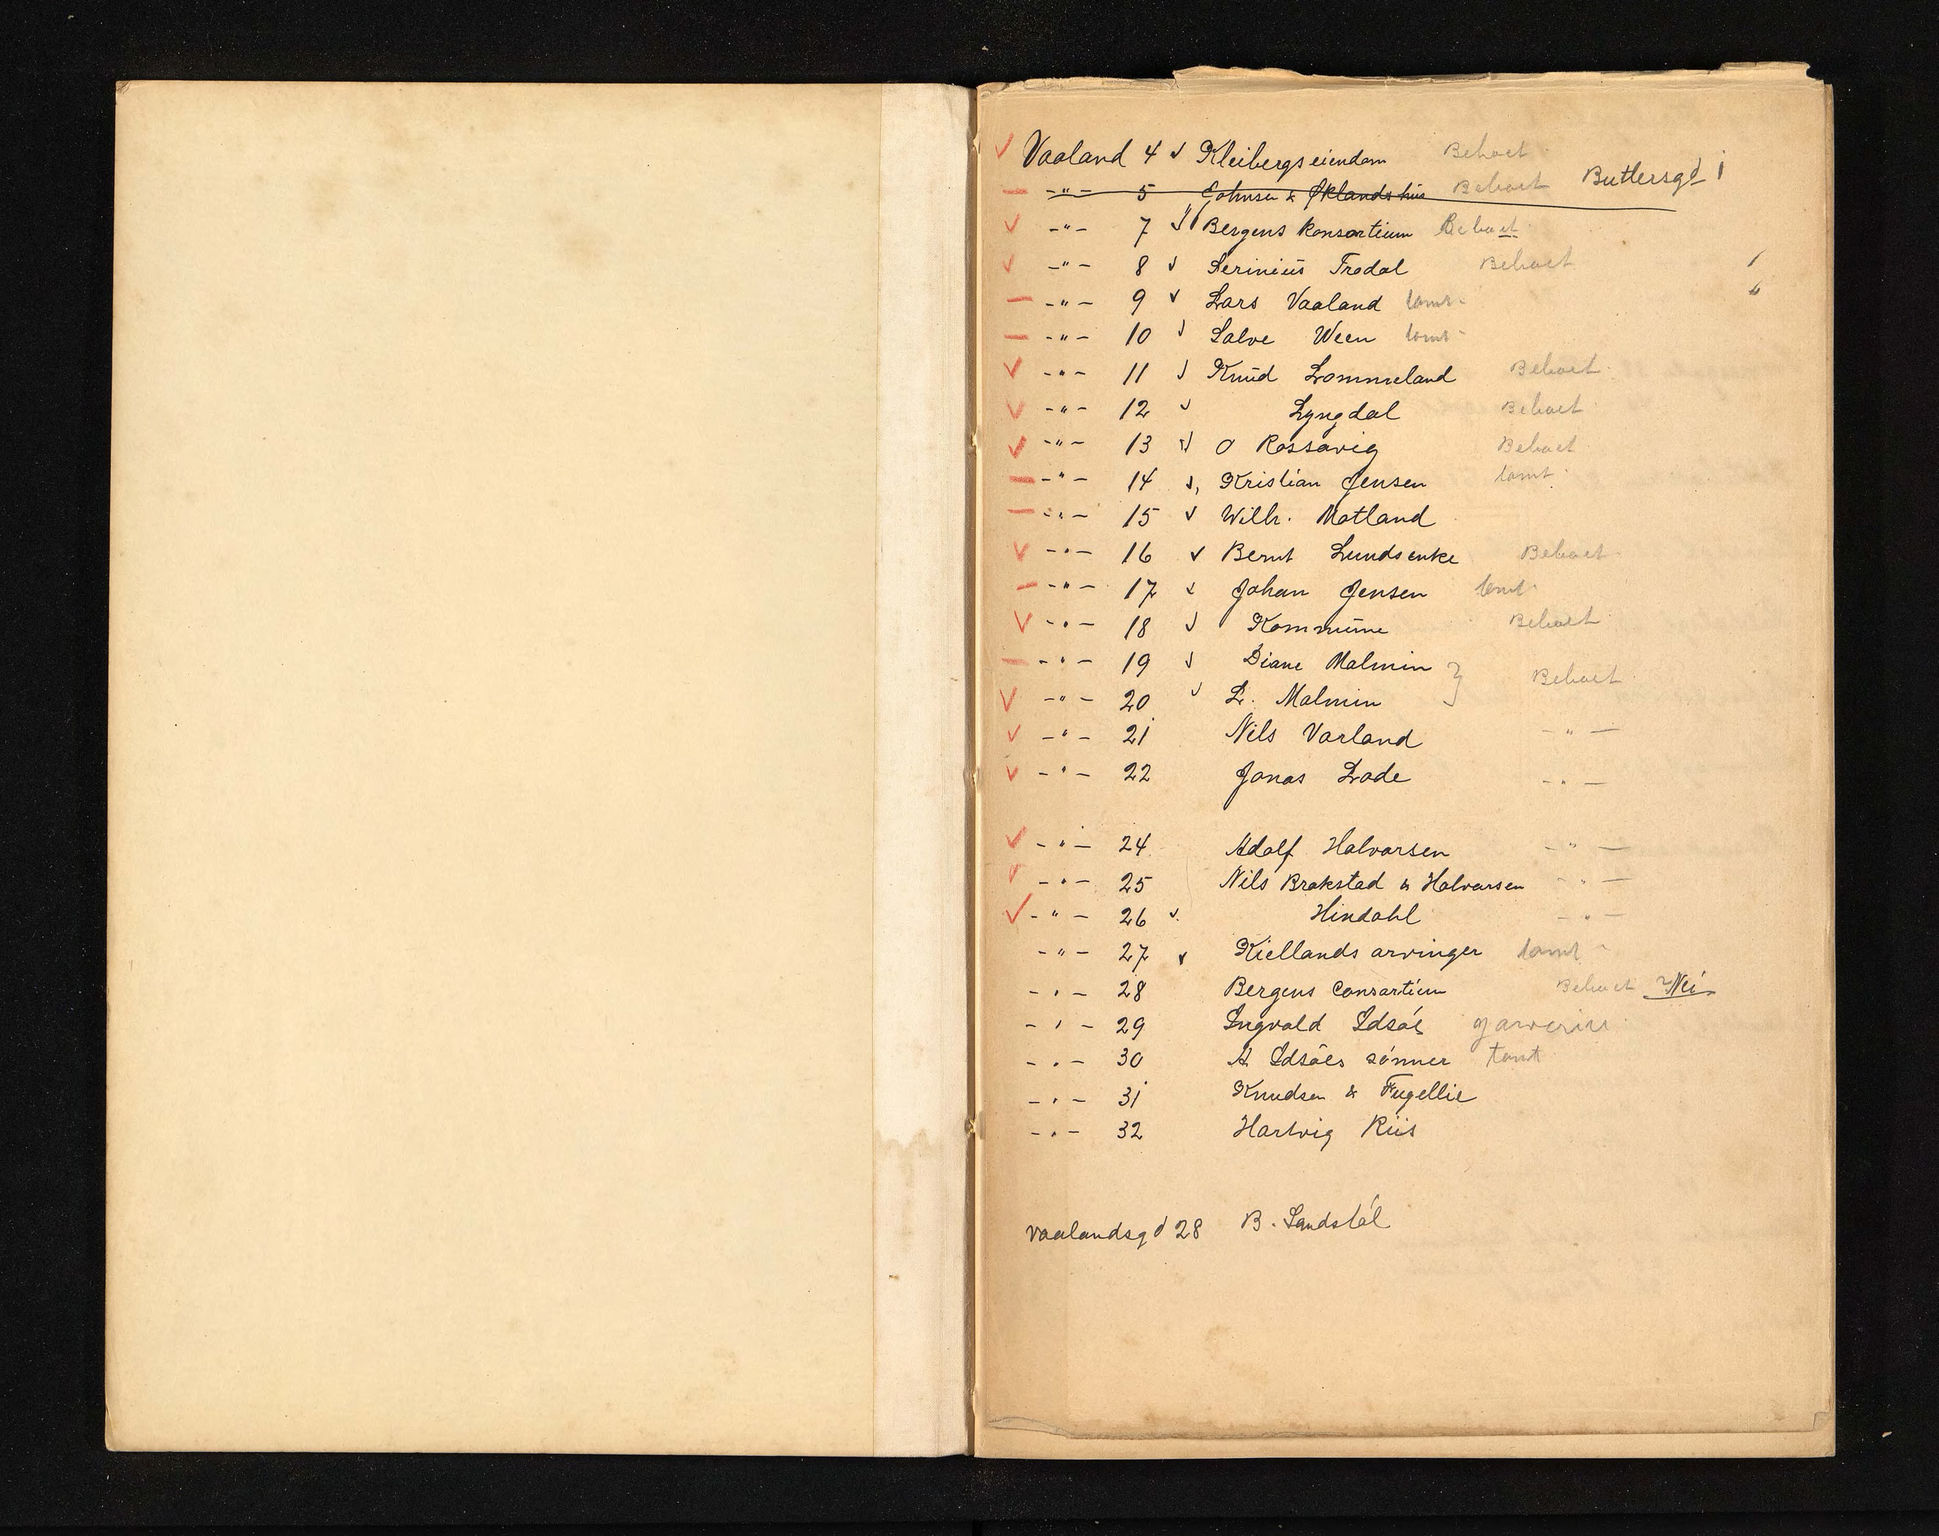 ✓ Vaaland 4 ✓ Kleibergseiendom Beboet
— -"- 5 Johnsen & Øklands hus Beboet Butlersgd 1
✓ -"- 7 ✓ Bergens Konsortium Beboet
✓ -"- 8 ✓ Serinius Frodal Beboet
— -"- 9 ✓ Lars Vaaland tomt
— -"- 10 ✓ Salve Ween tomt
✓ -"- 11 ✓ Knud Lommeland Beboet
✓ -"- 12 ✓ Lyngdal Beboet
✓ -"- 13 ✓ O Rossavig Beboet
— -"- 14 ✓ Kristian Jensen tomt
— -"- 15 ✓ Wilh. Motland
✓ -"- 16 ✓ Bernt Lundsenke Beboet
— -"- 17 ✓ Johan Jensen tomt
✓ -"- 18 ✓ Kommune Beboet
— -"- 19 ✓ Diane Malmin }
✓ -"- 20 ✓ L. Malmin } Beboet
✓ -"- 21 Nils Varland -"-
✓ -"- 22 Jonas Lode -"-
✓ -"- 24 Adolf Halvorsen -"-
✓ -"- 25 Nils Brakstad & Halvorsen -"-
✓ -"- 26 ✓ Hindahl -"-
-"- 27 ✓ Kiellands arvinger tomt
-"- 28 Bergens Consortium Beboet ? Nei
-"- 29 Ingvald Idsøe garveri
-"- 30 A Idsøes sønner tomt
-"- 31 Knudsen & Fugellie
-"- 32 Hartvig Riis
Vaalandsgd 28 B. Sandstøl